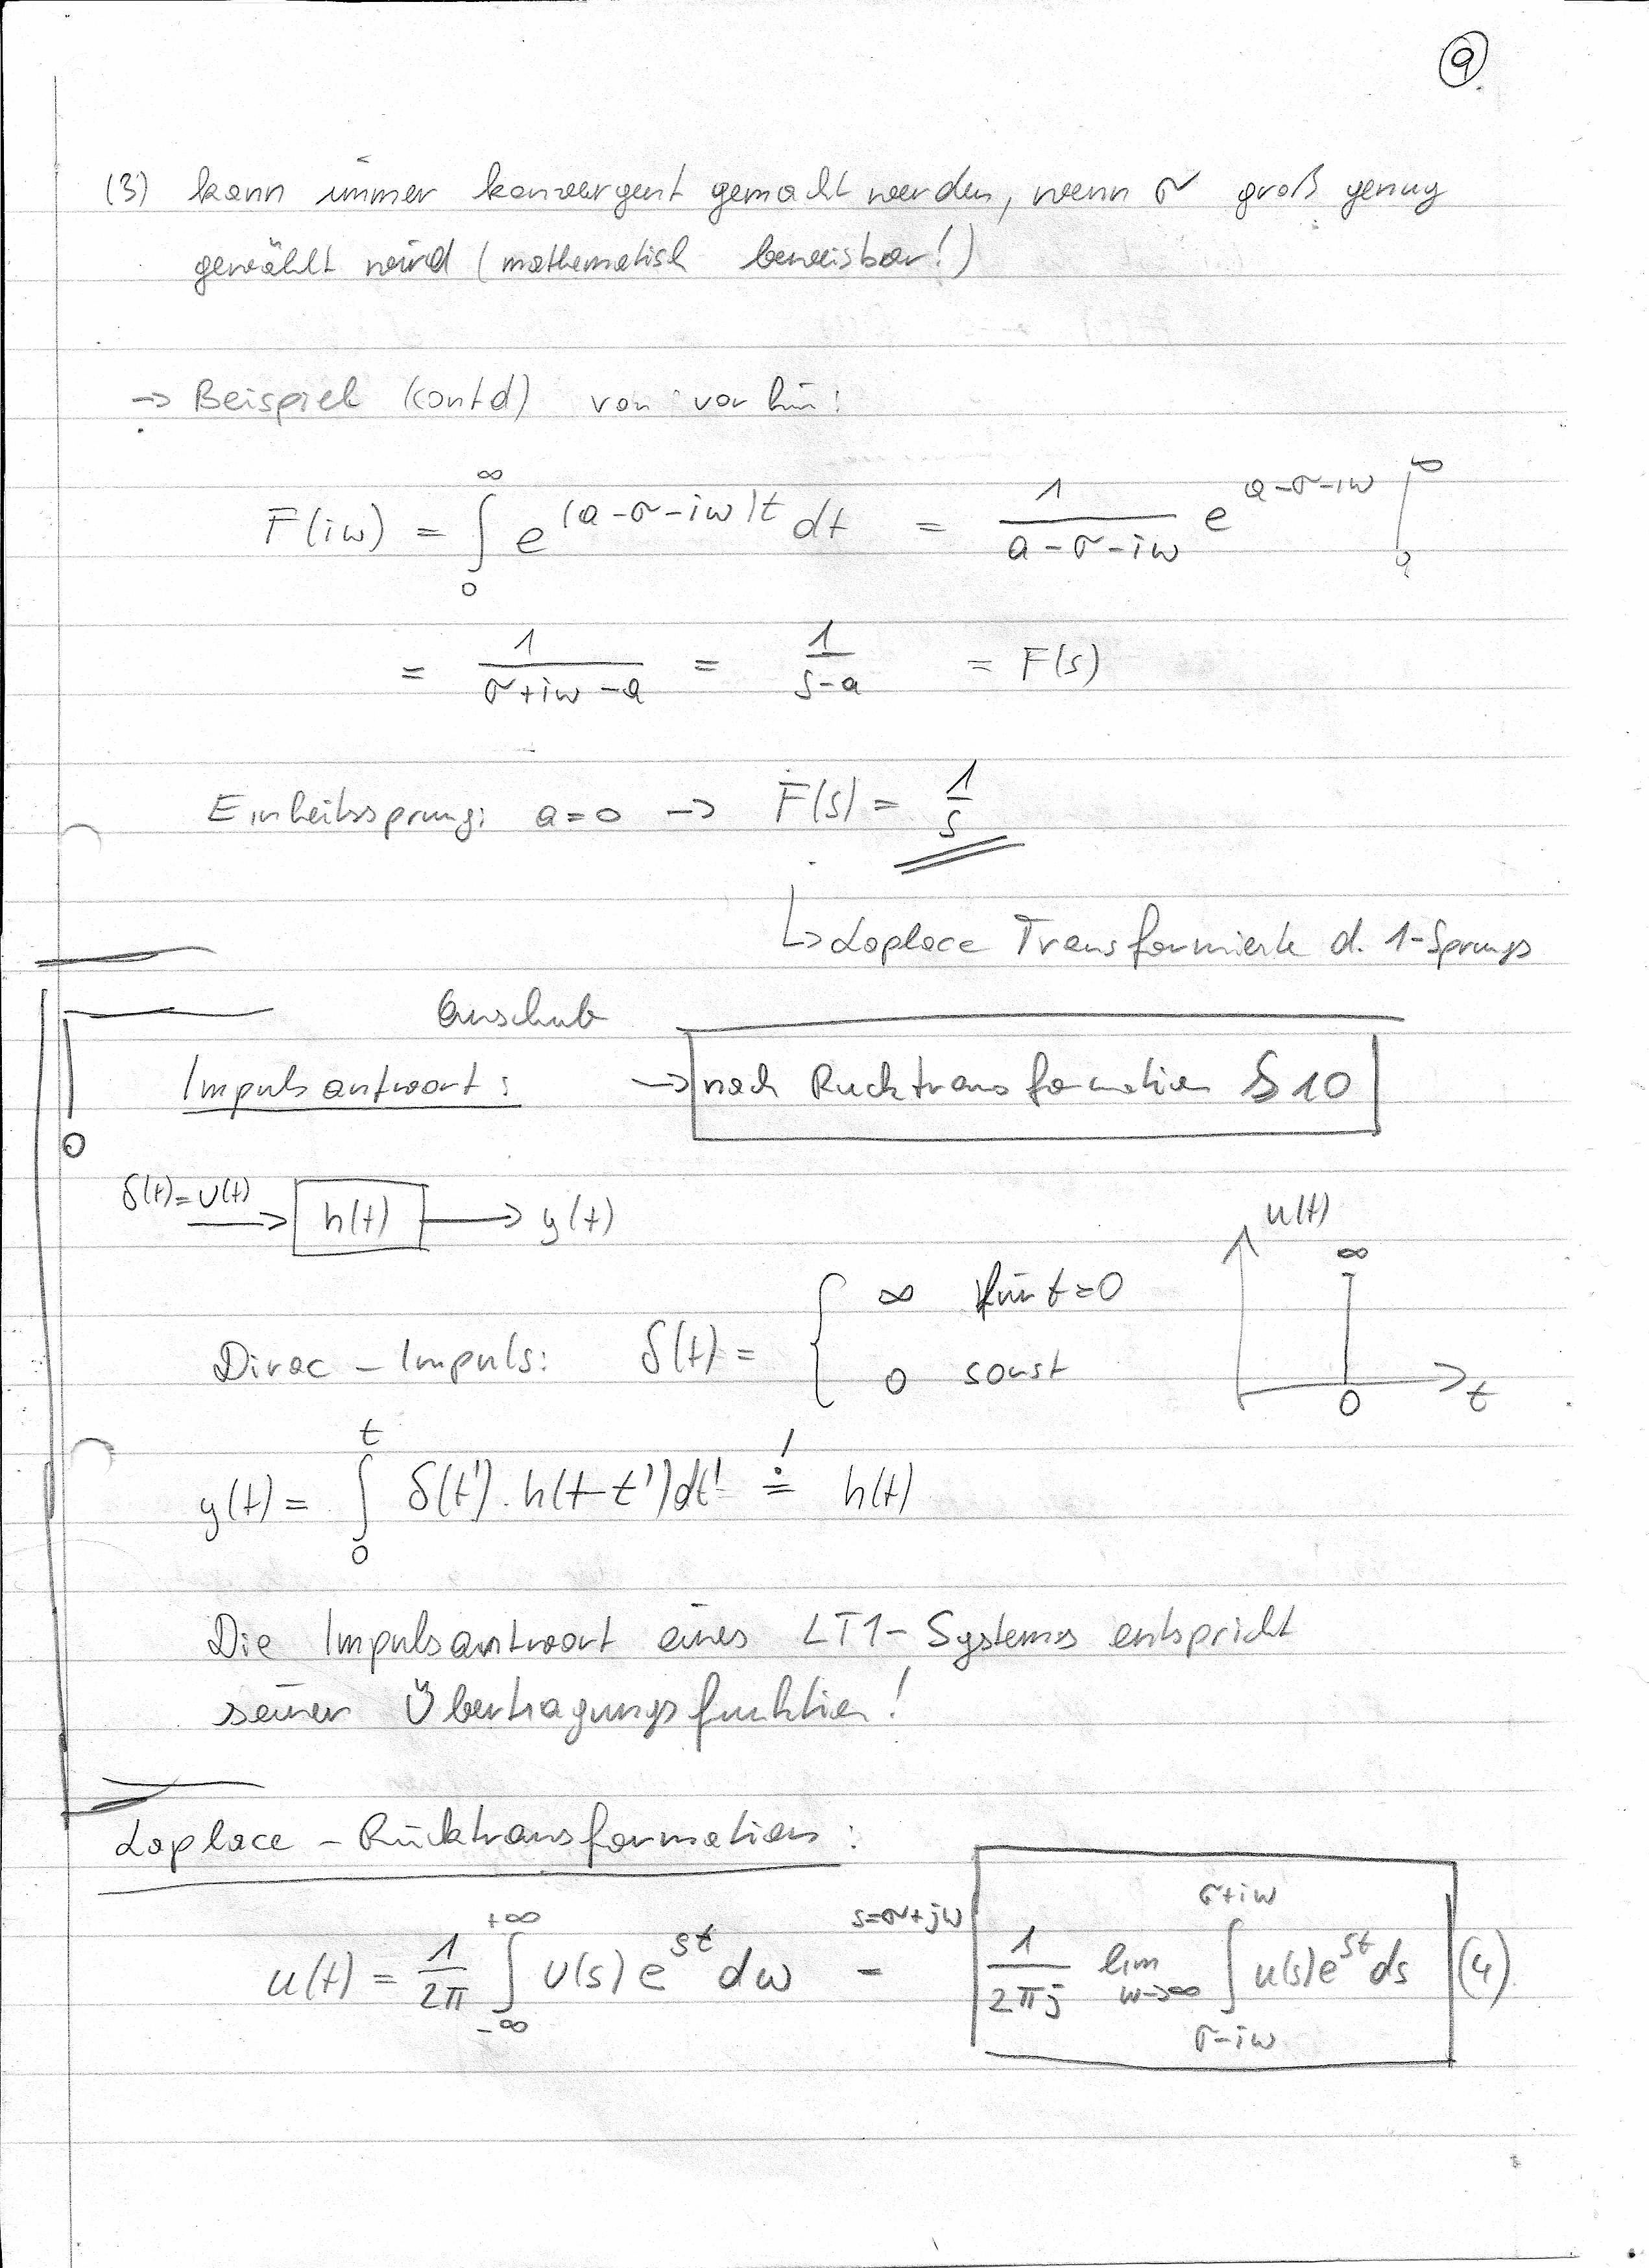 9
(3) kann immer konvergent gemacht werden, wenn σ groß genug
gewählt wird (mathematisch beweisbar!)
→ Beispiel (contd) von vorhin:
F(iω) = ∫₀^∞ e^(a-σ-iω)t dt = 1/(a-σ-iω) e^(a-σ-iω) |₀^∞
= 1/(σ+iω-a) = 1/(s-a) = F(s)
Einheitssprung: a=0 → F(s) = 1/s
↳ Laplace Transformierte d. 1-Sprungs
Einschub
Impulsantwort: → nach Rucktransformation S10
δ(t)=u(t) → h(t) → y(t)
u(t)
∞
0
t
Dirac-Impuls: δ(t) = { ∞ für t=0
0 sonst
y(t) = ∫₀^t δ(t')·h(t-t')dt' =! h(t)
Die Impulsantwort eines LTI-Systems entspricht
seiner Übertragungsfunktion!
Laplace-Rücktransformation:
u(t) = 1/2π ∫_-∞^+∞ U(s) e^st dω = s=σ+jω 1/2πj lim ω→∞ ∫_σ-iω^σ+iω u(s)e^st ds (4)